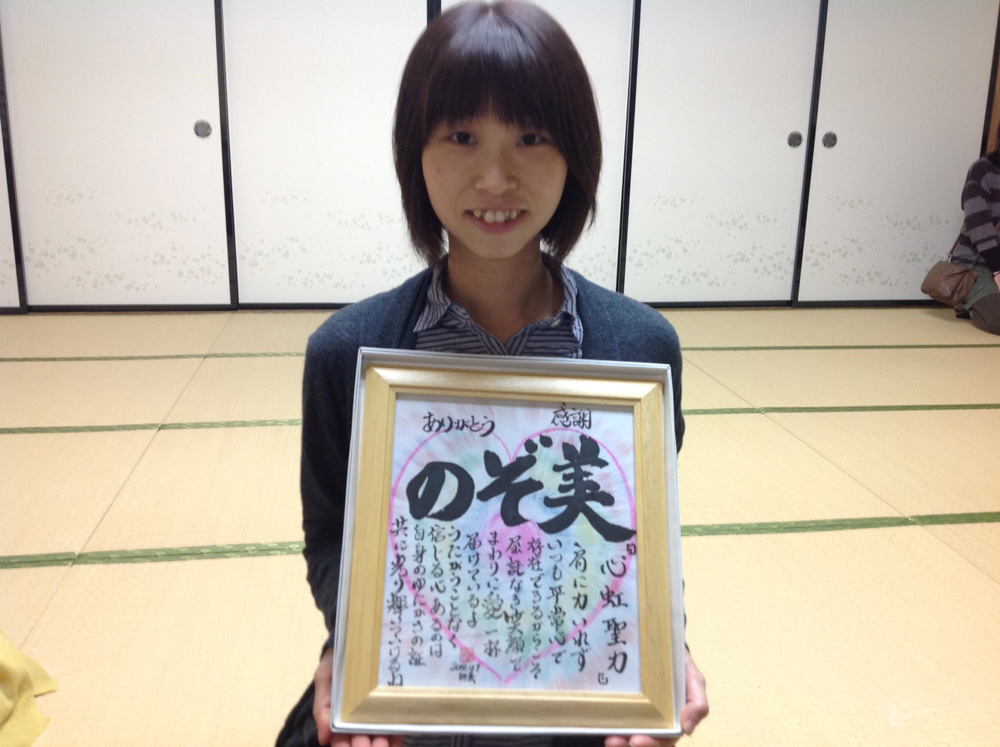 ありがとう 感謝
のぞ美
「心虹聖力」
肩に力いれず
いつも平常心で
存在できるからこそ
屈託なき笑顔で
まわりに愛一杯
届けているよ
うたがうことなく
信じる心あるのは
自身のゆたかさの証
共に光り輝いていけるね